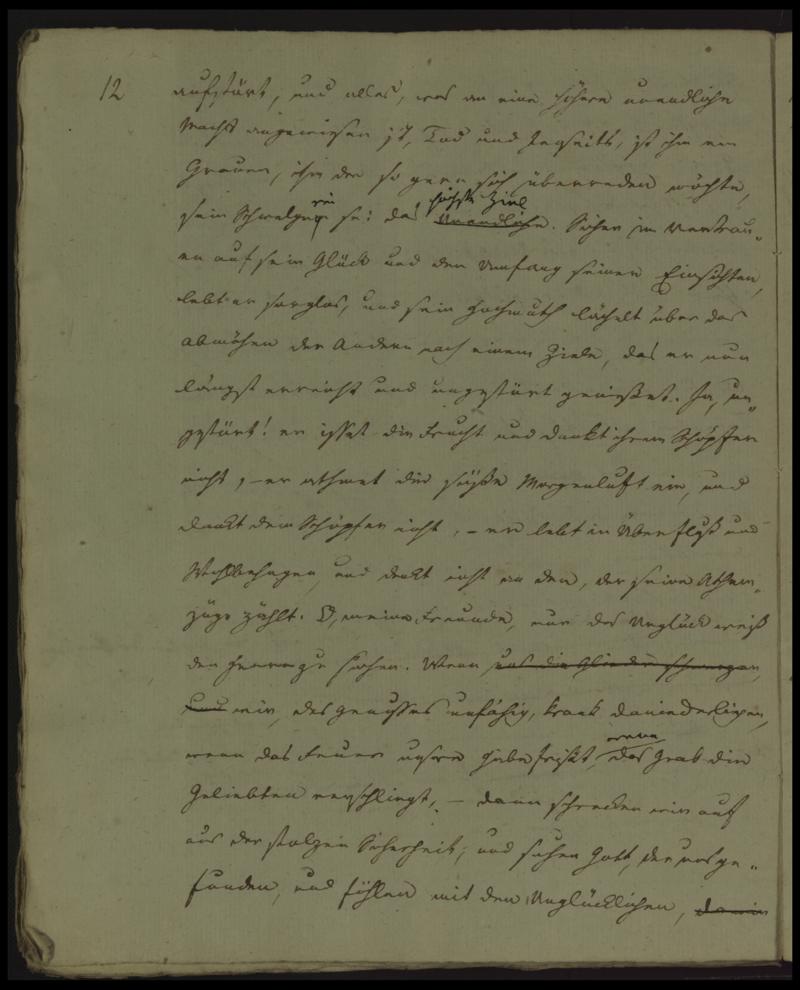 12
aufstört, und alles, was an eine höhere unendliche
Macht angewiesen ist, Tod und Jenseits, ist ihm ein
Grauen, ihm der so gern sich überreden möchte,
rei höchste Ziel
sein Schwelgen sei das Unendliche. Sicher im Vertrau„
en auf sein Glück und den Umfang seiner Einsichten,
lebt er sorglos, und sein Hochmuth lächelt über das
abmühen der Andern nach einem Ziele, das er nun
längst erreicht und ungestört genießet. Ja, un„
gestört! er isset die Frucht und dankt ihrem Schöpfer
nicht, – er athmet die süße Morgenluft ein, und
denkt dem Schöpfer nicht, – er lebt in Überfluß und
Wohlbehagen, und denkt nicht an den, der seine Athem„
züge zählt. O, meine Freunde, nur das Unglück weiß
den Herrn zu suchen. Wenn uns die Glieder schmerzen,
und wir, des Genusses unfähig, krank daniederliegen,
wenn
wenn das Feuer unsre Habe frißt, das Grab die
Geliebten verschlingt, – dann schrecken wir auf
aus der stolzen Sicherheit, und suchen Gott, den uns ge„
funden, und fühlen mit den Unglücklichen,